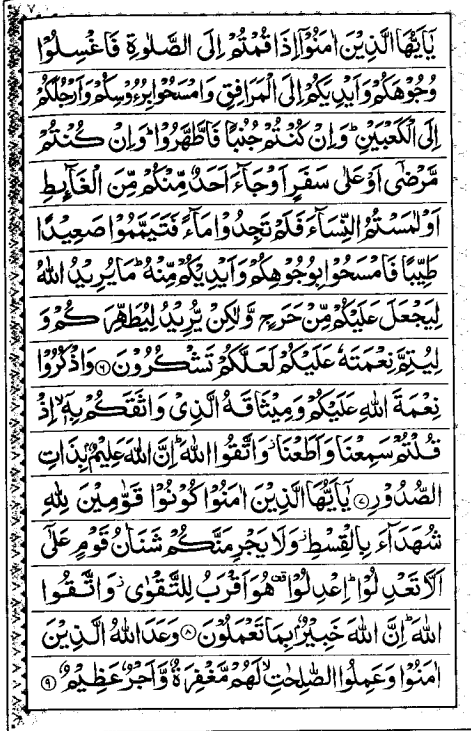 یٰۤاَیُّهَا الَّذِیْنَ اٰمَنُوْۤا اِذَا قُمْتُمْ اِلَی الصَّلٰوةِ فَاغْسِلُوْا
وُجُوْهَكُمْ وَاَیْدِیَكُمْ اِلَی الْمَرَافِقِ وَامْسَحُوْا بِرُءُوْسِكُمْ وَاَرْجُلَكُمْ
اِلَی الْكَعْبَیْنِ ؕ وَاِنْ كُنْتُمْ جُنُبًا فَاطَّهَّرُوْا ؕ وَاِنْ كُنْتُمْ
مَّرْضٰۤی اَوْ عَلٰی سَفَرٍ اَوْ جَآءَ اَحَدٌ مِّنْكُمْ مِّنَ الْغَآىِٕطِ
اَوْ لٰمَسْتُمُ النِّسَآءَ فَلَمْ تَجِدُوْا مَآءً فَتَیَمَّمُوْا صَعِیْدًا
طَیِّبًا فَامْسَحُوْا بِوُجُوْهِكُمْ وَاَیْدِیْكُمْ مِّنْهُ ؕ مَا یُرِیْدُ اللّٰهُ
لِیَجْعَلَ عَلَیْكُمْ مِّنْ حَرَجٍ وَّلٰكِنْ یُّرِیْدُ لِیُطَهِّرَكُمْ وَ
لِیُتِمَّ نِعْمَتَهٗ عَلَیْكُمْ لَعَلَّكُمْ تَشْكُرُوْنَ ۶ وَاذْكُرُوْا
نِعْمَةَ اللّٰهِ عَلَیْكُمْ وَمِیْثَاقَهُ الَّذِیْ وَاثَقَكُمْ بِهٖۤ ۙ اِذْ
قُلْتُمْ سَمِعْنَا وَاَطَعْنَا ؗ وَاتَّقُوا اللّٰهَ ؕ اِنَّ اللّٰهَ عَلِیْمٌۢ بِذَاتِ
الصُّدُوْرِ ۷ یٰۤاَیُّهَا الَّذِیْنَ اٰمَنُوْا كُوْنُوْا قَوّٰمِیْنَ لِلّٰهِ
شُهَدَآءَ بِالْقِسْطِ ؗ وَلَا یَجْرِمَنَّكُمْ شَنَاٰنُ قَوْمٍ عَلٰۤی
اَلَّا تَعْدِلُوْا ؕ اِعْدِلُوْا ۫ هُوَ اَقْرَبُ لِلتَّقْوٰی ؗ وَاتَّقُوا
اللّٰهَ ؕ اِنَّ اللّٰهَ خَبِیْرٌۢ بِمَا تَعْمَلُوْنَ ۸ وَعَدَ اللّٰهُ الَّذِیْنَ
اٰمَنُوْا وَعَمِلُوا الصّٰلِحٰتِ ۙ لَهُمْ مَّغْفِرَةٌ وَّاَجْرٌ عَظِیْمٌ ۹